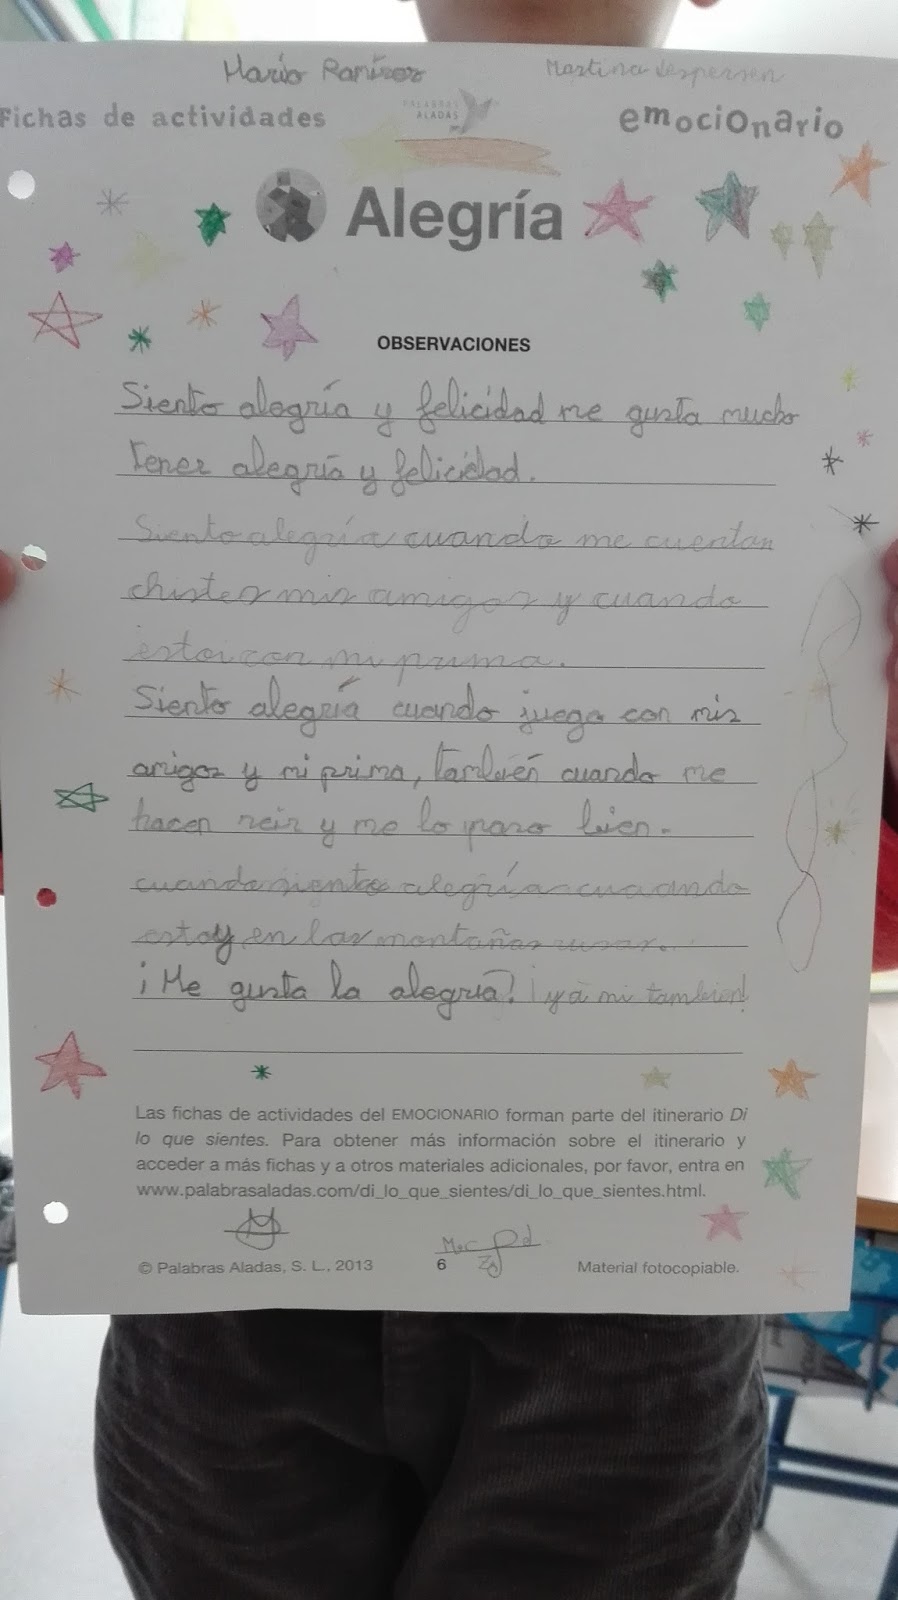 Mario Ramírez Martina Jespersen
Fichas de actividades PALABRAS ALADAS emocionario
Alegría
OBSERVACIONES
Siento alegría y felicidad me gusta mucho
tener alegría y felicidad.
Siento alegría cuando me cuentan
chistes mis amigos y cuando
estoi con mi prima.
Siento alegría cuando juega con mis
amigos y mi prima, también cuando me
hacen reir y me lo paso bien.
cuando siento alegría cuando
estoy en las montañas
¡Me gusta la alegría! ¡y a mi tambien!
Las fichas de actividades del EMOCIONARIO forman parte del itinerario Di
lo que sientes. Para obtener más información sobre el itinerario y
acceder a más fichas y a otros materiales adicionales, por favor, entra en
www.palabrasaladas.com/di_lo_que_sientes/di_lo_que_sientes.html.
© Palabras Aladas, S. L., 2013 6 Material fotocopiable.